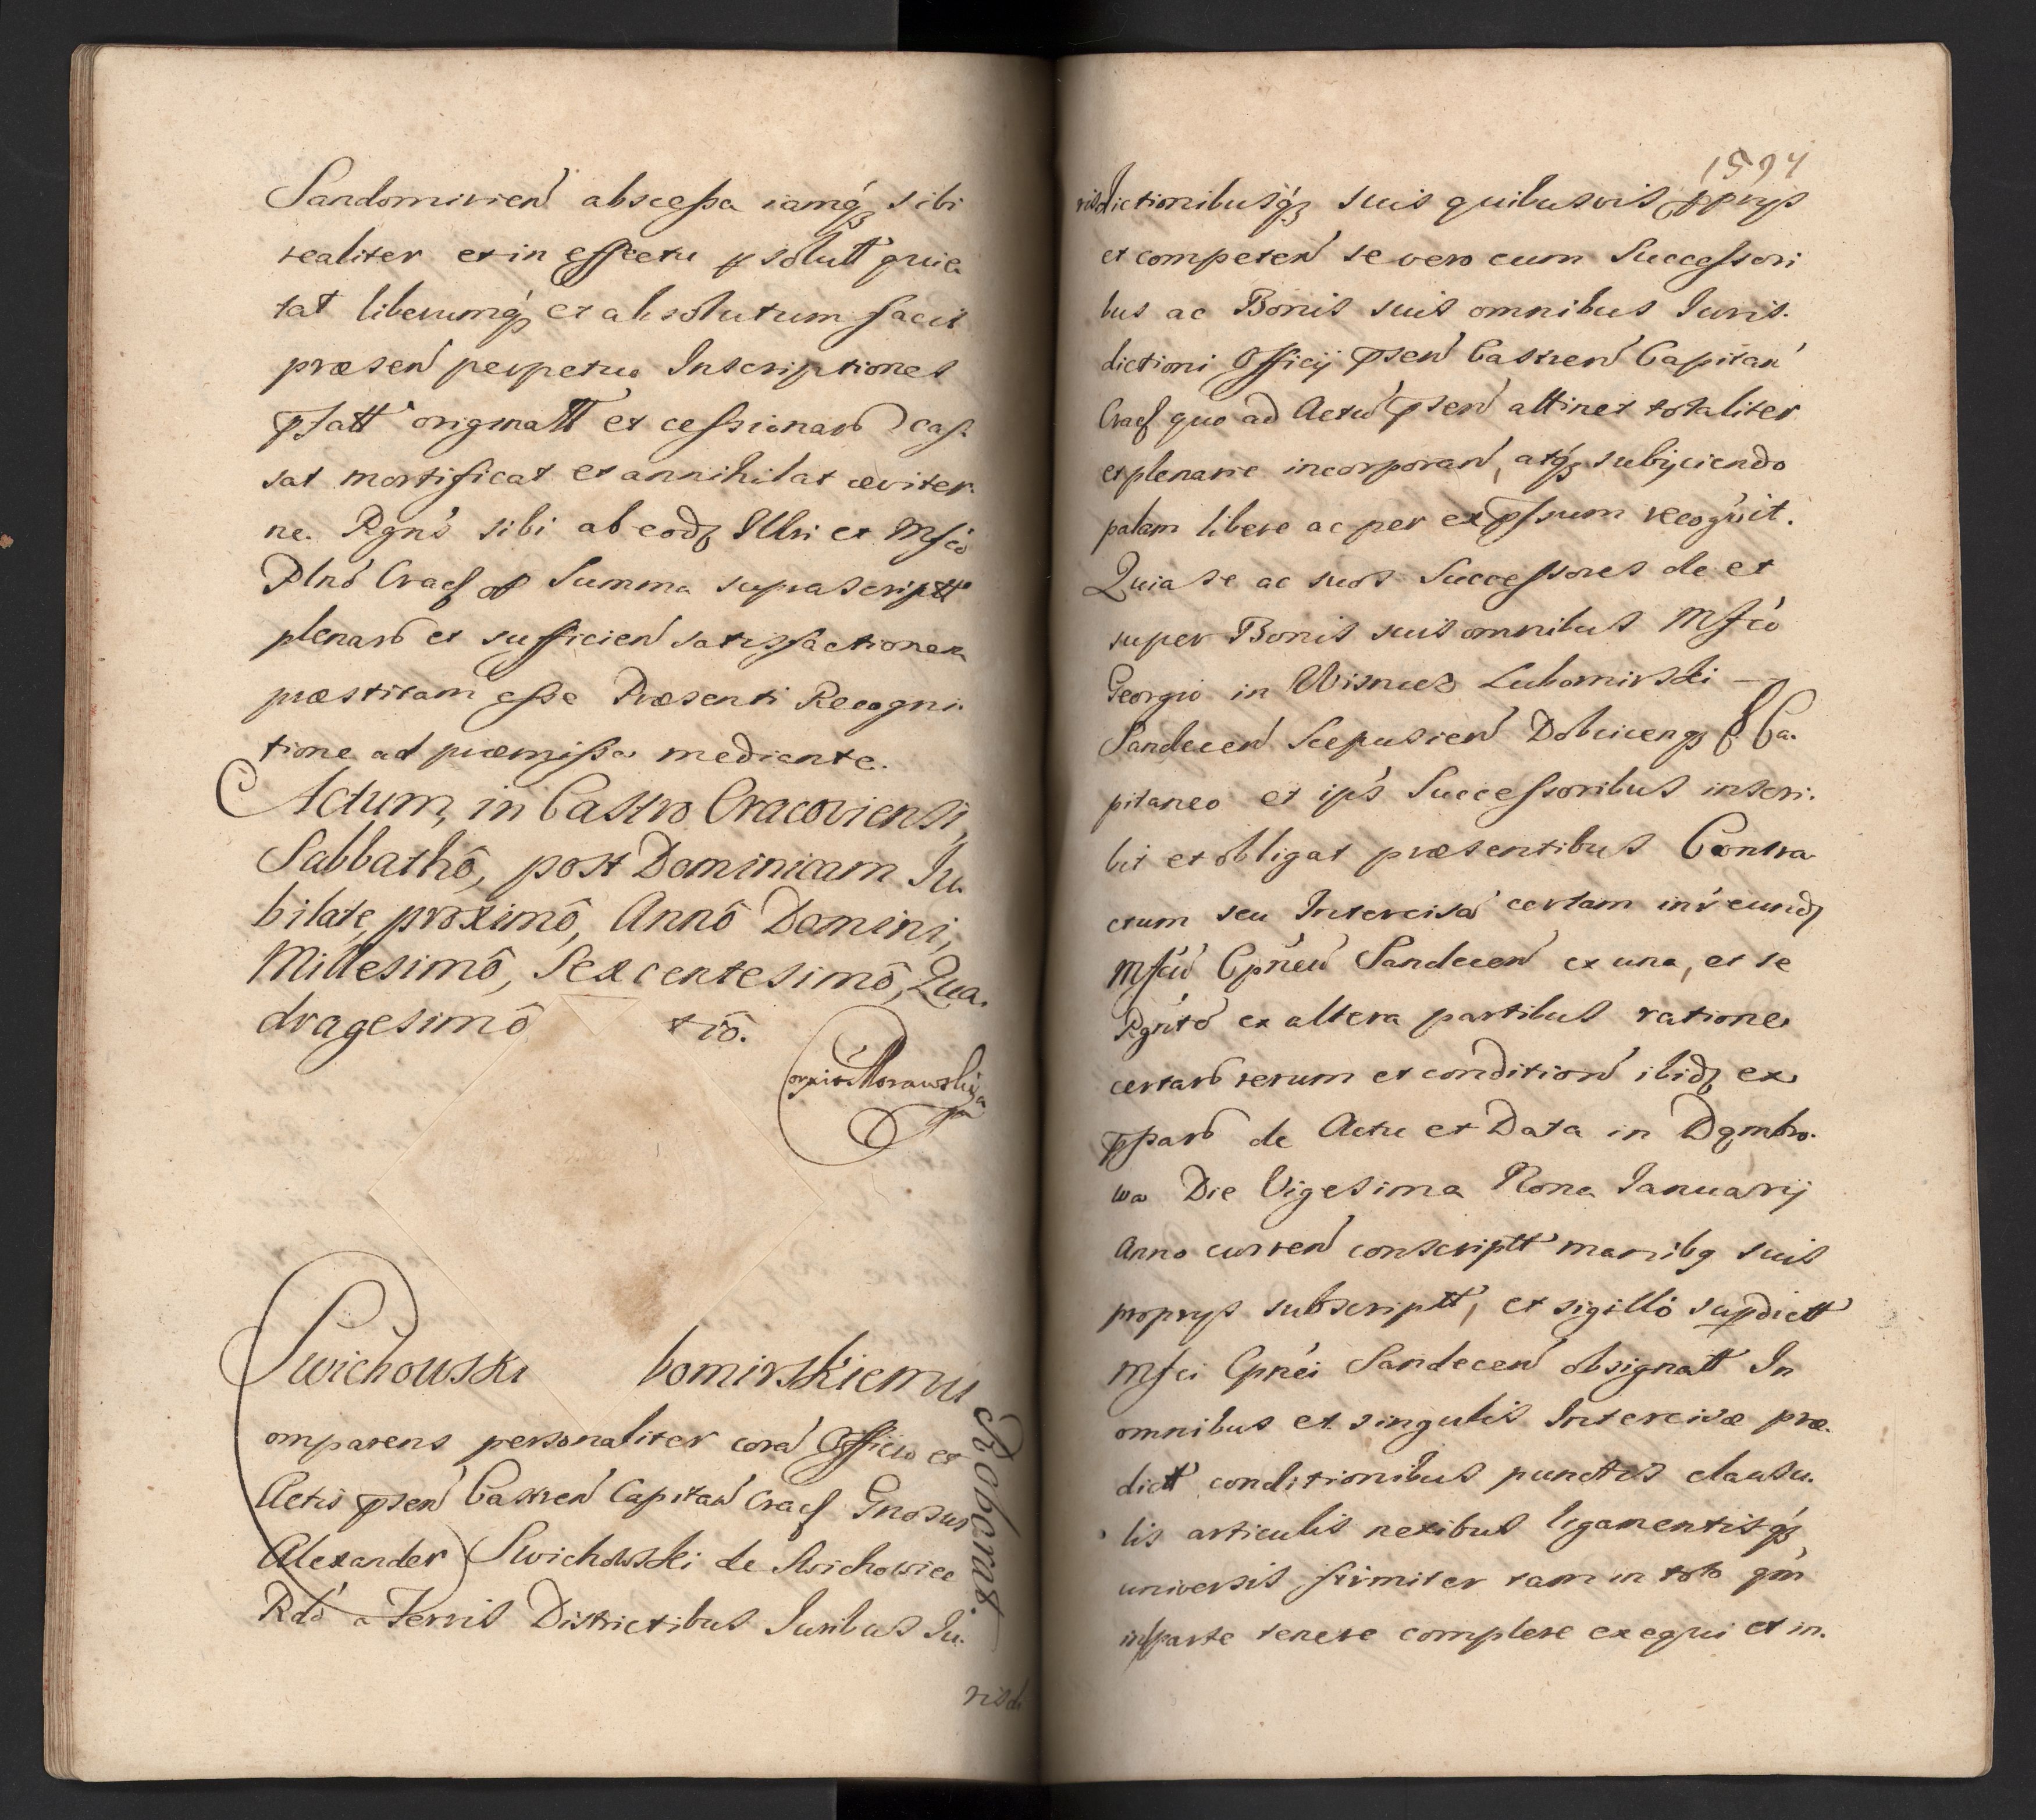 Sandomirien abscessa iamq₃ sibi
realiter et in effectu psolutt quie
tat liberumq₃ et absolutum facit
præsen perpetuo Inscriptiones
pfatt originatt et cessionar cas-
sat mortificat et annihilat æviter-
ne. Rgns sibi ab eodz Illri et Mfco
Plno Cracz p Summa suprascriptt
plenar et sufficien satisfactionem
præstitam esse Præsenti Recogni-
tione ad præmissa mediante.
Actum, in Castro Cracoviensi,
Sabbathô, post Dominicam Iu-
bilate, proximô, Annô Domini,
Millesimô, Sexcentesimô, Qua-
dragesimô tiô.
Morawski
Swichowski bomirskiemu
omparens personaliter cora Officio et
Actis psen Castren Capitan Cracz Gnosus
Alexander Swichowski de Swichowice
Rdo a Terris Districtibus Iuribus Iu-
Roborat
risdi
1594
risdictionibusq₃ suis quibusvis pprys
et competen se vero cum Successori
bus ac Bonis suis omnibus Iuris-
dictioni Officij psen Castren Capitan
Cracz quo ad Actu psen attinet totaliter
et plenarie incorporan, atq₃ subijciendo
palam libere ac per expssum recognit.
Quia se ac suos Successores de et
super Bonis suis omnibus Mfco
Georgio in Wisnicz Lubomirski —
Sandecen Scepusien Dobcicenq₃ & Ca-
pitaneo et ips Successoribus inscri-
bit et obligat præsentibus Contra-
ctum seu Intercisa certam inr eundz
Mfcu Cpneu Sandecen ex una, et se
Rgnto ex altera partibus ratione
certar rerum et condition ibidz ex
ppar de Actu et Data in Dąmbro-
wa Die Vigesima Nona Ianuarij
Anno curren conscriptt manibq suis
proprys subscriptt, et sigillo supdictt
Mfci Cpnei Sandecen obsignatt In
omnibus et singulis Intercisæ præ-
dictt conditionibus punctis clausu-
lis articulis nexibus ligamentisq₃
universis firmiter tam in toto qm
in parte tenere complere exequi et in-